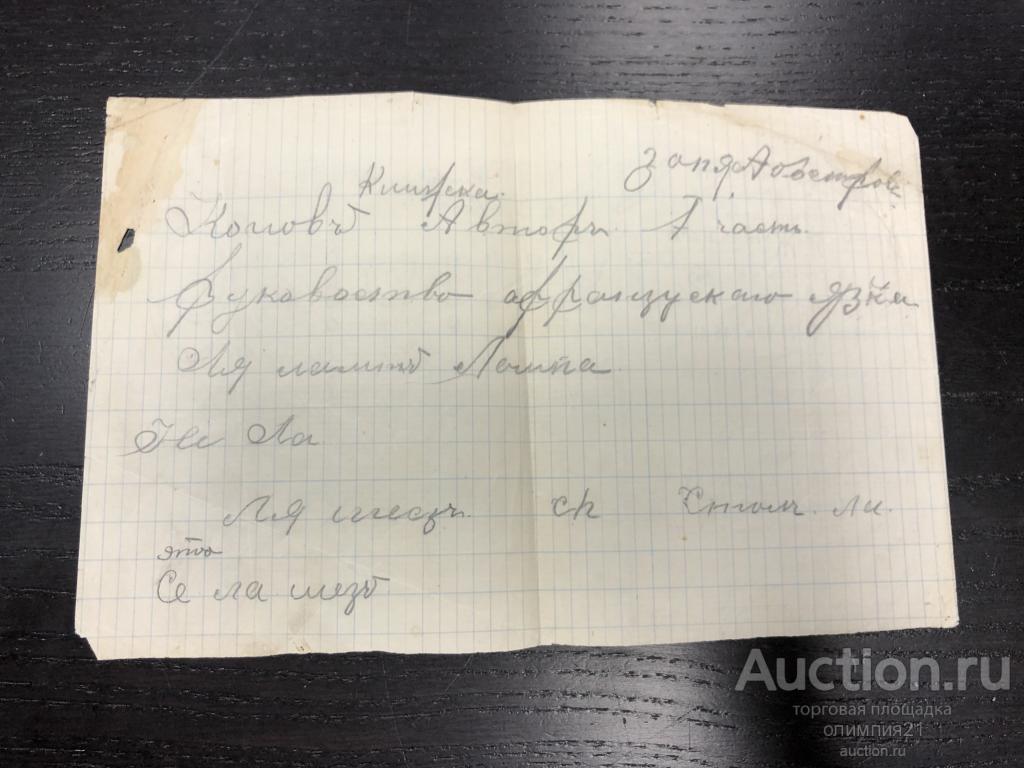 Книжка.
Коповъ Авторъ 1 часть.
Руковоство французскаго языка
Ля лампъ Лампа
Не Ла
Ля шезъ. Столъ. ли.
это
Се ла шезъ
Auction.ru
торговая площадка
олимпия21
auction.ru